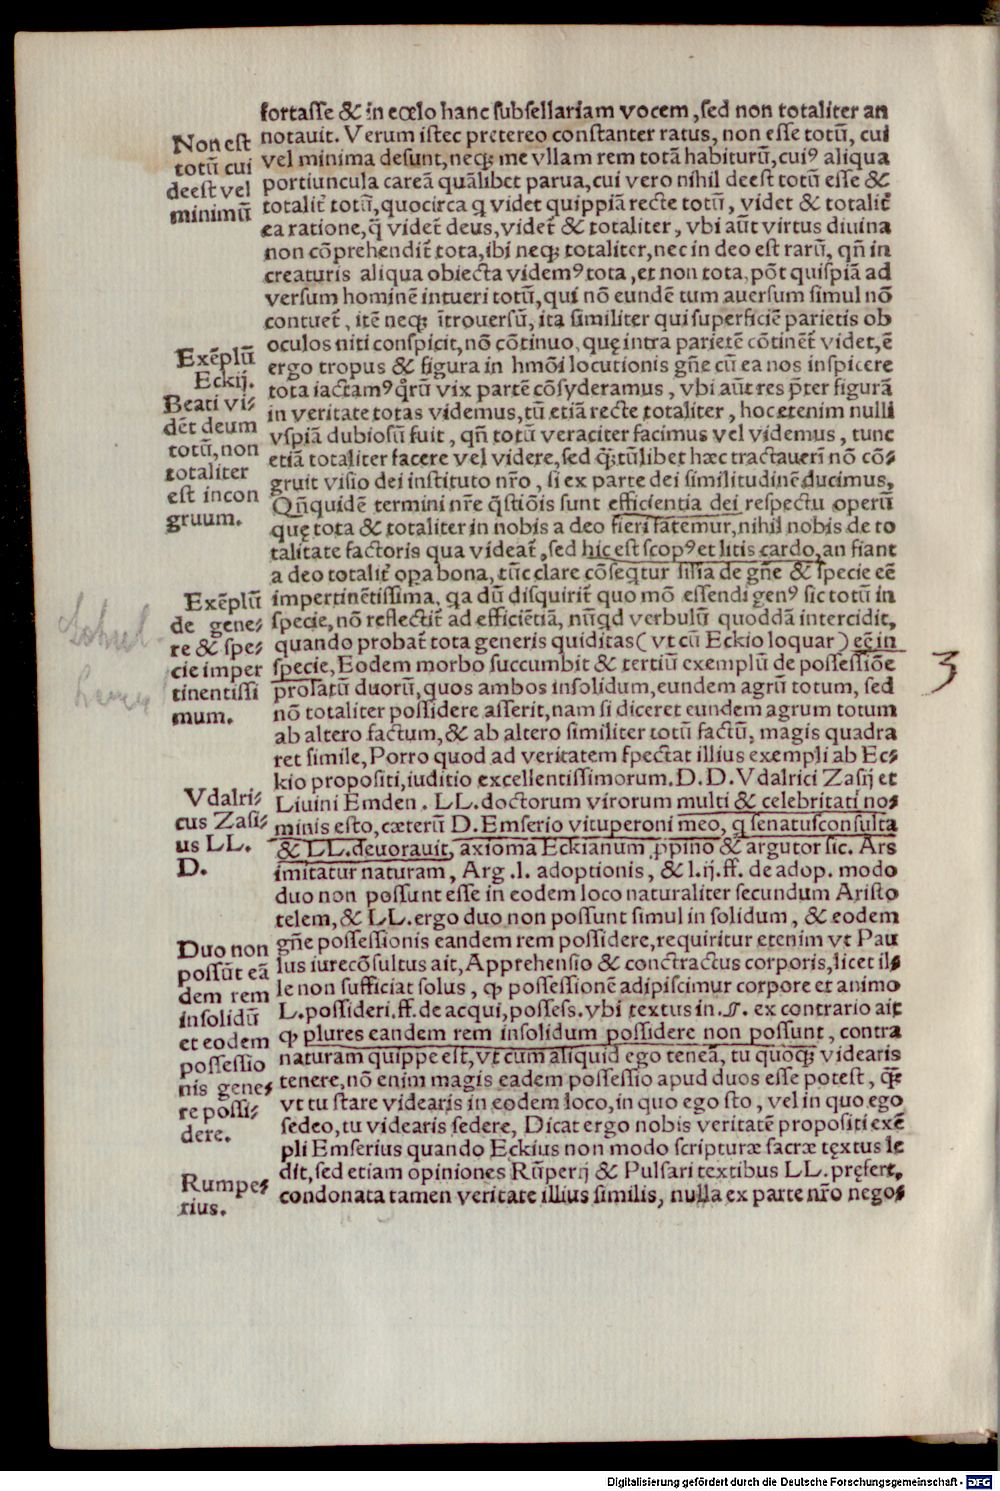 fortasse & in cœlo hanc subsellariam vocem, sed non totaliter an
notauit. Verum istec pretereo constanter ratus, non esse totū, cui
vel minima desunt, neqꝫ me vllam rem totā habiturū, cuiꝰ aliqua
portiuncula careā quālibet parua, cui vero nihil deest totū esse &
totalit̃ totū, quocirca q videt quippiā recte totū, videt & totalit̃
ea ratione, q̃ videt̃ deus, videt̃ & totaliter, vbi aūt virtus diuina
non cōprehendit̃ tota, ibi neqꝫ totaliter, nec in deo est rarū, qñ in
creaturis aliqua obiecta videmꝰ tota, et non tota, põt quispiā ad
versum hominē intueri totū, qui nō eundē tum auersum simul nō
contuet̃, itē neqꝫ ĩtrouersū, ita similiter qui superficiē parietis ob
oculos niti conspicit, nō cōtinuo, quę intra parietē cōtinēt̃ videt, ē
ergo tropus & figura in hmōi locutionis gñe cū ea nos inspicere
tota iactamꝰ q̊rū vix partē cōsyderamus, vbi aūt res p̃ter figurā
in veritate totas videmus, tū etiā recte totaliter, hoc etenim nulli
vspiā dubiosū fuit, qñ totū veraciter facimus vel videmus, tunc
etiā totaliter facere vel videre, sed q̃ꝫtūlibet hæc tractauerĩ nō cō-
gruit visio dei instituto nr̃o, si ex parte dei similitudinē ducimus,
Qñquidē termini nr̃e q̃stiōis sunt efficientia dei respectu operū
quę tota & totaliter in nobis a deo fieri fatemur, nihil nobis de to
talitate factoris qua videat̃, sed hic est scopꝰ et litis cardo, an fiant
a deo totalit̃ oꝑa bona, tūc clare cōseq̃tur sĩlia de gñe & specie eē
impertinētissima, qa dū disquirit̃ quo mō essendi genꝰ sic totū in
specie, nō reflectit̃ ad efficiētiā, nūqd verbulū quoddā intercidit,
quando probat̃ tota generis quiditas (vt cū Eckio loquar) eē in
specie, Eodem morbo succumbit & tertiū exemplū de possessiōe
prolatū duorū, quos ambos insolidum, eundem agrū totum, sed
nō totaliter possidere asserit, nam si diceret eundem agrum totum
ab altero factum, & ab altero similiter totū factū, magis quadra
ret simile, Porro quod ad veritatem spectat illius exempli ab Ec-
kio propositi, iuditio excellentissimorum. D. D. Vdalrici Zasij et
Liuini Emden. LL. doctorum virorum multi & celebritati no-
minis esto, cæterū D. Emserio vituperoni meo, q senatusconsulta
& LL. deuorauit, axioma Eckianum ꝓpino & argutor sic. Ars
imitatur naturam, Arg. l. adoptionis, & l. ij. ff. de adop. modo
duo non possunt esse in eodem loco naturaliter secundum Aristo
telem, & LL. ergo duo non possunt simul in solidum, & eodem
gñe possessionis eandem rem possidere, requiritur etenim vt Pau
lus iurecōsultus ait, Apprehensio & conctractus corporis, licet il-
le non sufficiat solus, ꝙ possessionē adipiscimur corpore et animo
L. possideri. ff. de acqui, possess. vbi textus in. §. ex contrario ait
ꝙ plures eandem rem insolidum possidere non possunt, contra
naturam quippe est, vt cum aliquid ego teneā, tu quoqꝫ videaris
tenere, nō enim magis eadem possessio apud duos esse potest, q̃ꝫ
vt tu stare videaris in eodem loco, in quo ego sto, vel in quo ego
sedeo, tu videaris sedere, Dicat ergo nobis veritatē propositi exē
pli Emserius quando Eckius non modo scripturæ sacræ tęxtus lę
dit, sed etiam opiniones Rūperij & Pulsari textibus LL. pręfert,
condonata tamen veritate illius similis, nulla ex parte nr̃o nego-
Non est
totū cui
deest vel
minimū
Exēplū
Eckij.
Beati vi-
dēt deum
totū, non
totaliter
est incon
gruum.
Exēplū
de gene-
re & spe-
cie imper
tinentissi
mum.
Vdalri-
cus Zasi-
us LL.
D.
Duo non
possūt eā
dem rem
insolidū
et eodem
possessio
nis gene-
re possi-
dere.
Rumpe-
rius.
3
Digitalisierung gefördert durch die Deutsche Forschungsgemeinschaft - DFG